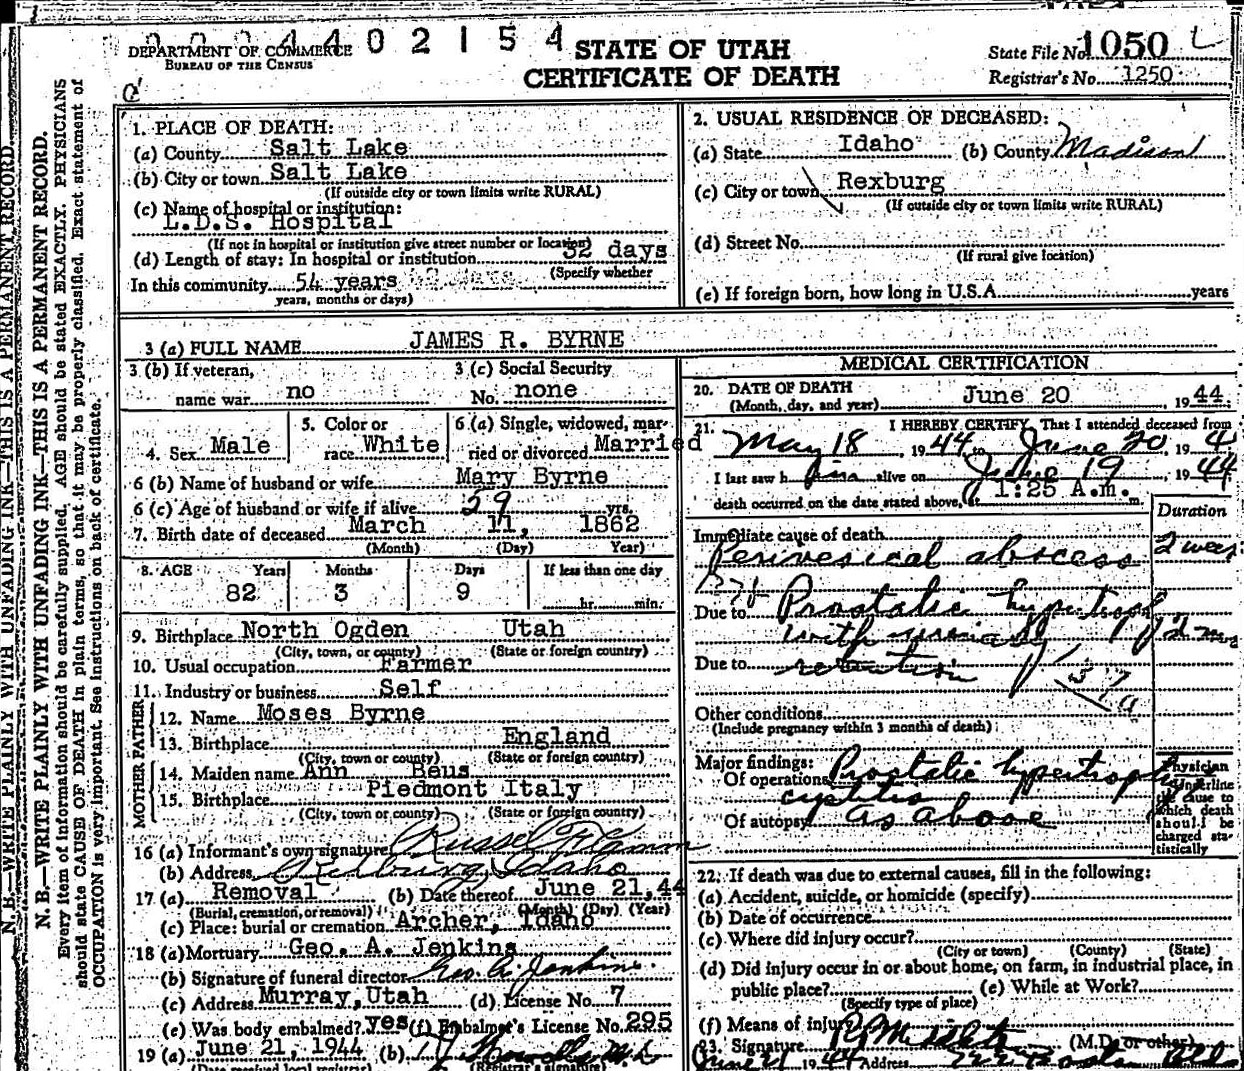 4 4 0 2 1 5 4
DEPARTMENT OF COMMERCE
BUREAU OF THE CENSUS
STATE OF UTAH
CERTIFICATE OF DEATH
State File No. 1050
Registrar's No. 1250
N. B.—WRITE PLAINLY WITH UNFADING INK—THIS IS A PERMANENT RECORD.
N. B.—WRITE PLAINLY WITH UNFADING INK—THIS IS A PERMANENT RECORD.
Every item of information should be carefully supplied. AGE should be stated EXACTLY. PHYSICIANS
should state CAUSE OF DEATH in plain terms, so that it may be properly classified. Exact statement of
OCCUPATION is very important. See instructions on back of certificate.
1. PLACE OF DEATH:
(a) County Salt Lake
(b) City or town Salt Lake
(If outside city or town limits write RURAL)
(c) Name of hospital or institution:
L.D.S. Hospital
(If not in hospital or institution give street number or location)
(d) Length of stay: In hospital or institution 32 days
(Specify whether
In this community 54 years
years, months or days)
2. USUAL RESIDENCE OF DECEASED:
(a) State Idaho (b) County Madison
(c) City or town Rexburg
(If outside city or town limits write RURAL)
(d) Street No.
(If rural give location)
(e) If foreign born, how long in U.S.A. years
3 (a) FULL NAME JAMES R. BYRNE
3 (b) If veteran,
name war no
3 (c) Social Security
No. none
4. Sex Male
5. Color or
race White
6 (a) Single, widowed, mar-
ried or divorced Married
6 (b) Name of husband or wife Mary Byrne
6 (c) Age of husband or wife if alive 59 yrs.
7. Birth date of deceased March 11, 1862
(Month) (Day) Year)
8. AGE Years Months Days If less than one day
82 3 9 hr. min.
9. Birthplace North Ogden Utah
(City, town, or county) (State or foreign country)
10. Usual occupation Farmer
11. Industry or business Self
FATHER
12. Name Moses Byrne
13. Birthplace England
(City, town or county) (State or foreign country)
MOTHER
14. Maiden name Ann Beus
15. Birthplace Piedmont Italy
(City, town or county) (State or foreign country)
16 (a) Informant's own signature Russel
(b) Address Rexburg Idaho
17 (a) Removal (b) Date thereof June 21,44
(Burial, cremation, or removal) (Month) (Day) (Year)
(c) Place: burial or cremation Archer, Idaho
18 (a) Mortuary Geo. A. Jenkins
(b) Signature of funeral director Geo. A. Jenkins.
(c) Address Murray, Utah (d) License No. 7
(e) Was body embalmed? yes (f) Embalmer's License No. 295
19 (a) June 21, 1944 (b)
(Date received local registrar) (Registrar's signature)
MEDICAL CERTIFICATION
20. DATE OF DEATH
(Month, day, and year) June 20, 1944.
21. I HEREBY CERTIFY, That I attended deceased from
May 18, 1944 to June 20, 194
I last saw him alive on June 19, 1944
death occurred on the date stated above, at 1:25 A.m. m.
Duration
Immediate cause of death
Perivesical abscess 2 weeks
Due to Prostatic hypertrophy
with 12 mos
Due to retention
37a
Other conditions
(Include pregnancy within 3 months of death)
Major findings:
Of operations Prostatic hypertrophy
cystitis
Of autopsy as above
Physician
Underline
the cause to
which death
should be
charged sta-
tistically
22. If death was due to external causes, fill in the following:
(a) Accident, suicide, or homicide (specify)
(b) Date of occurrence
(c) Where did injury occur?
(City or town) (County) (State)
(d) Did injury occur in or about home, on farm, in industrial place, in
public place? (e) While at Work?
(Specify type of place)
(f) Means of injury?
23. Signature (M.D. or other)
June 21 1944 Address